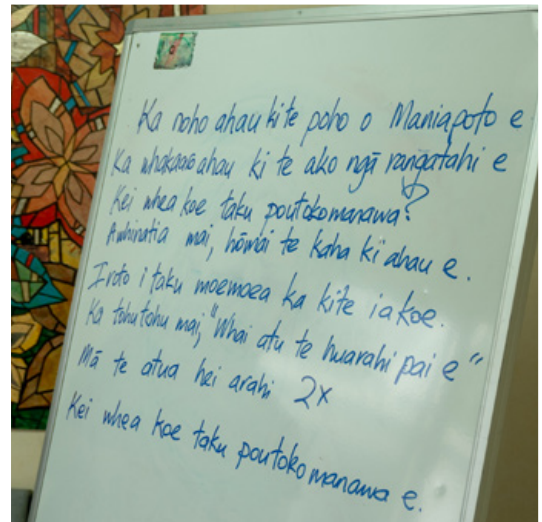 Ka noho ahau ki te poho o Maniapoto e
Ka whakaaro ahau ki te ako ngā rangatahi e
Kei whea koe taku poutokomanawa?
Awhinatia mai, hōmai te kaha ki ahau e.
I roto i taku moemoea ka kite i a koe.
Ka tohutohu mai, "Whai atu te huarahi pai e"
Mā te atua hei arahi 2x
Kei whea koe taku poutokomanawa e.